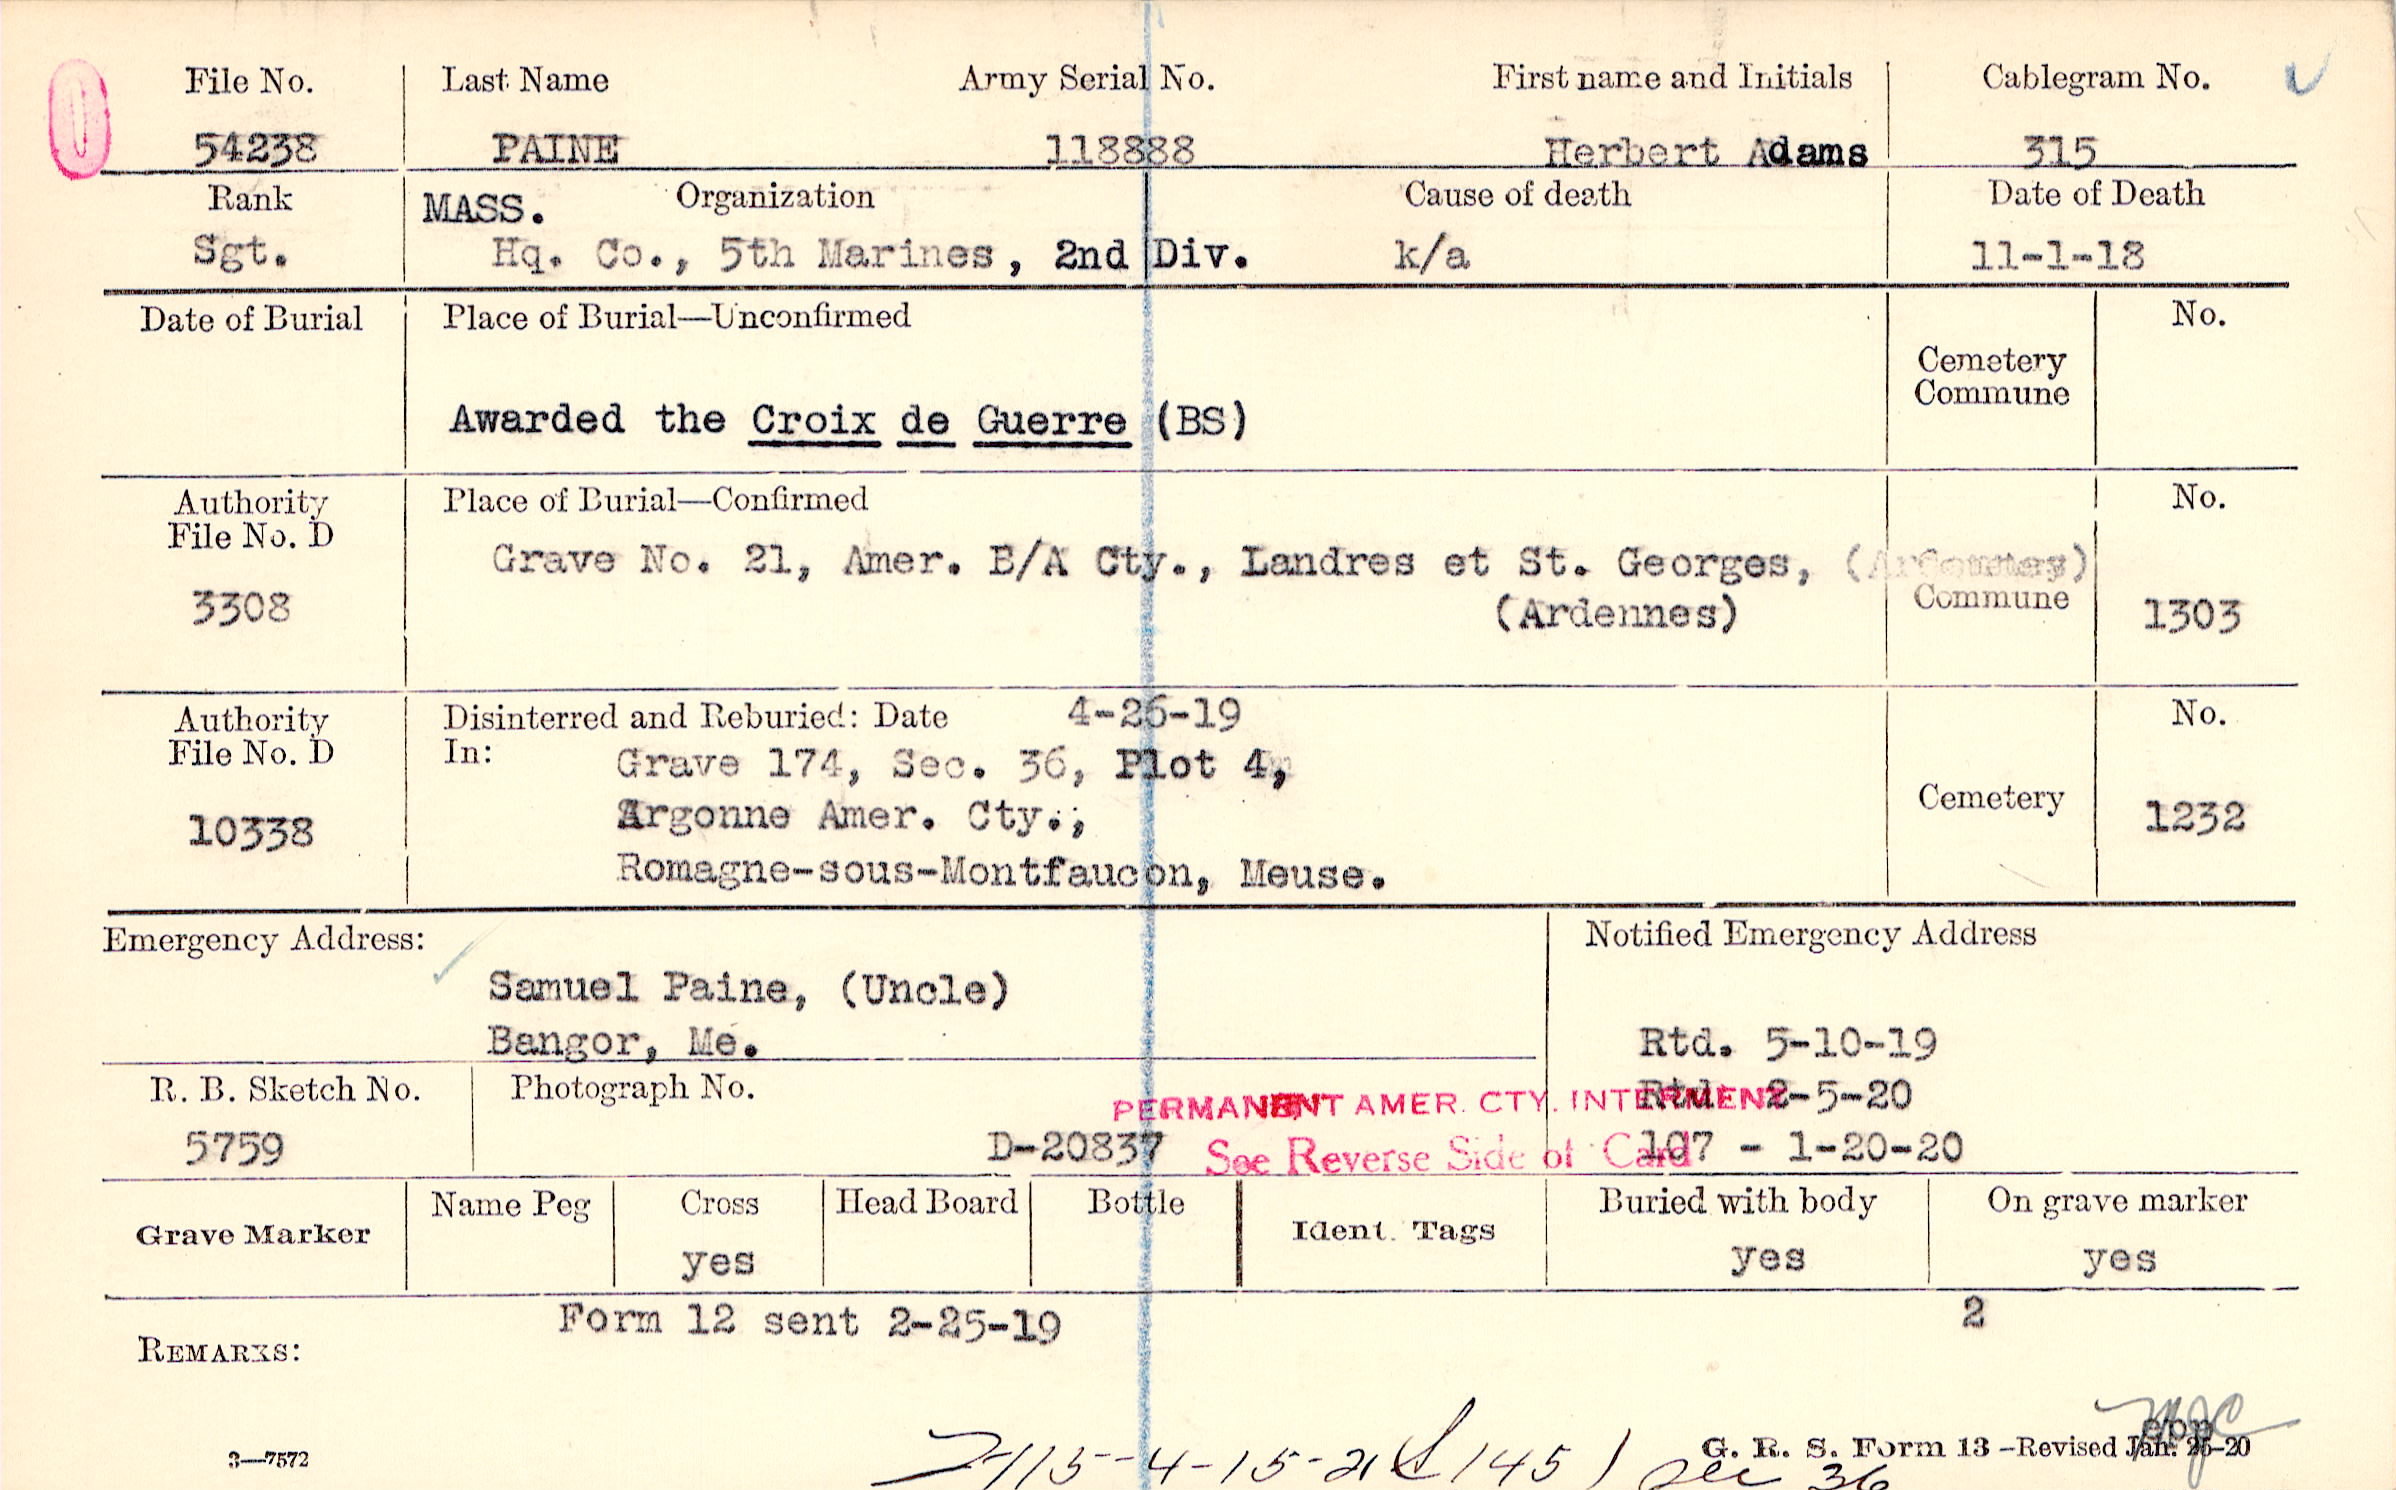 File No. Last Name Army Serial No. First name and Initials Cablegram No.
54238 PAINE 118888 Herbert Adams 315
Rank MASS. Organization Cause of death Date of Death
Sgt. Hq. Co., 5th Marines, 2nd Div. k/a 11-1-18
Date of Burial Place of Burial—Unconfirmed No.
Cemetery
Commune
Awarded the Croix de Guerre (BS)
Authority Place of Burial—Confirmed No.
File No. D
Grave No. 21, Amer. E/A Cty., Landres et St. Georges,
3308 (Ardennes) Commune 1303
Authority Disinterred and Reburied: Date 4-26-19 No.
File No. D In: Grave 174, Sec. 36, Plot 4,
10338 Argonne Amer. Cty., Cemetery 1232
Romagne-sous-Montfaucon, Meuse.
Emergency Address: Notified Emergency Address
Samuel Paine, (Uncle)
Bangor, Me. Rtd. 5-10-19
R. B. Sketch No. Photograph No. PERMANENT AMER. CTY. INTERMENT Rtd. 2-5-20
5759 D-20837 See Reverse Side of Card 107 - 1-20-20
Grave Marker Name Peg Cross Head Board Bottle Ident. Tags Buried with body On grave marker
yes yes yes
Form 12 sent 2-25-19 2
REMARKS:
3—7572 G. R. S. Form 13 -Revised Jan. 26-20